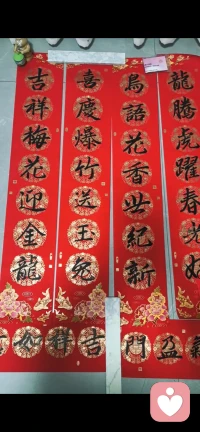 龍騰虎躍春
鳥語花香世紀新
喜慶爆竹送玉兔
吉祥梅花迎金龍
盈門
吉祥如